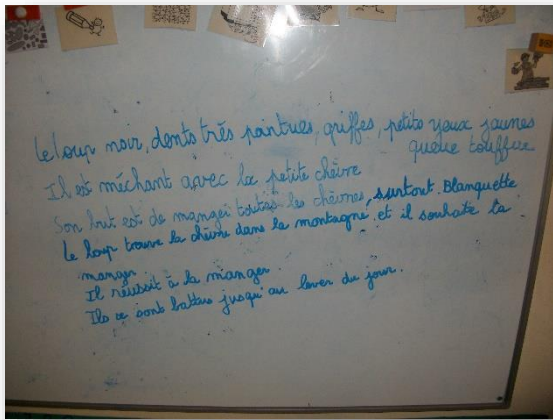 Le loup noir, dents très pointues, griffes, petits yeux jaunes
queue touffue
Il est méchant avec la petite chèvre
Son but est de manger toutes les chèvres, surtout Blanquette
Le loup trouve la chèvre dans la montagne et il souhaite la
manger
Il réussit à la manger.
Ils ce sont battus jusqu'au lever du jour.